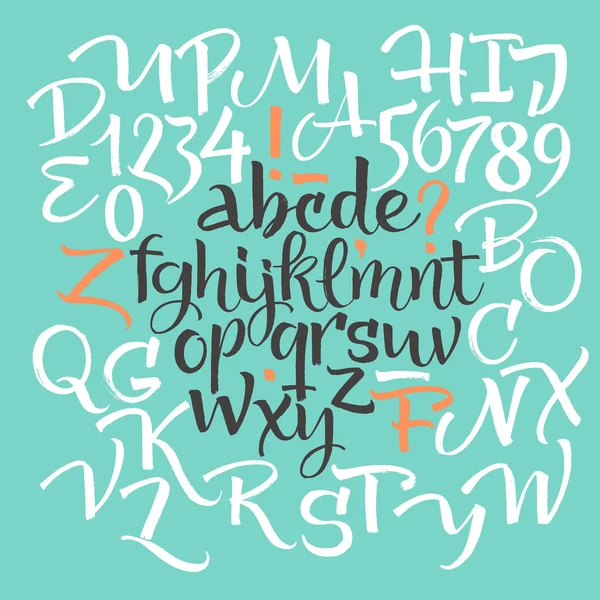 UPM HIJ
D 1234 ! A 56789
E 0 – abcde ? B
Z fghijklmnt , O
QG opqrsuv C
. wxyz – F N X
V K L R S T Y W